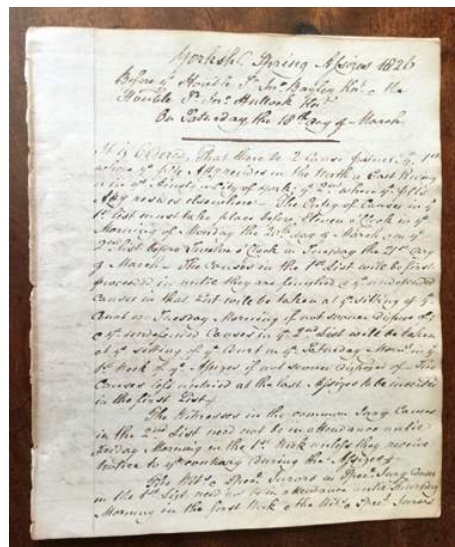 Yorksh. Spring Assizes 1826
Before ye Honble Sr Jno Bayley Knt & the
Honble Sr Jno Hullock Knt
On Saturday, the 18th day of March
It is Ordered, That there be 2 Cause ye 1st
where ye plts Atty resides in the North or East Riding
or in ye Ainsty or City of York, ye 2nd where ye plts
Atty resides elsewhere – The Entry of Causes in ye
1st List must take place before Eleven o'Clock in ye
Morning of Monday the 20th day of March, & in ye
2nd List before Twelve o'Clock on Tuesday the 21st day
of March – The Causes in the 1st List will be first
proceeded in until they are finished & ye undefended
Causes in that List will be taken at ye sitting of ye
Court on Tuesday Morning if not sooner disposed of
& ye undefended Causes in ye 2nd List will be taken
at ye sitting of ye Court on ye Saturday Morng in ye
1st Week of ye Assizes if not sooner disposed of – The
Causes left untried at the last Assizes to be inserted
in the first List
The Witnesses in the common Jury Causes
in the 2nd List need not be in attendance until
Friday Morning in the 1st Week unless they receive
notice to ye contrary during the Assizes
The Witss & Specl Jurors in Specl Jury Causes
in the 1st List need not be in attendance until Thursday
Morning in the first Week & the Witss & Specl Jurors